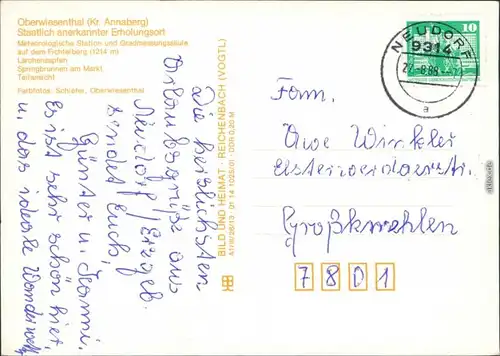 Oberwiesenthal (Kr. Annaberg)
Staatlich anerkannter Erholungsort
Meteorologische Station und Gradmessungssäule
auf dem Fichtelberg (1214 m)
Lärchenzapfen
Springbrunnen am Markt
Teilansicht
Farbfotos: Schlefer, Oberwiesenthal
BILD UND HEIMAT · REICHENBACH (VOGTL)
A1/III/26/13 01 14 1025/01 DDR 0,20 M
Die herzlichsten
Urlaubsgrüße aus
Neudorf/Erzgeb.
sendet Euch,
Günter u. Hanni.
Es ist sehr schön hier,
u. das ideale Wanderwett
NEUDORF
9314
a
10
Fam.
Uwe Winkler
Großkmehlen
7801